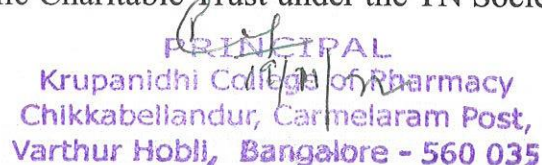 ne Charitable Trust under the TN Socie
PRINCIPAL
Krupanidhi College of Pharmacy
Chikkabellandur, Carmelaram Post,
Varthur Hobli, Bangalore - 560 035